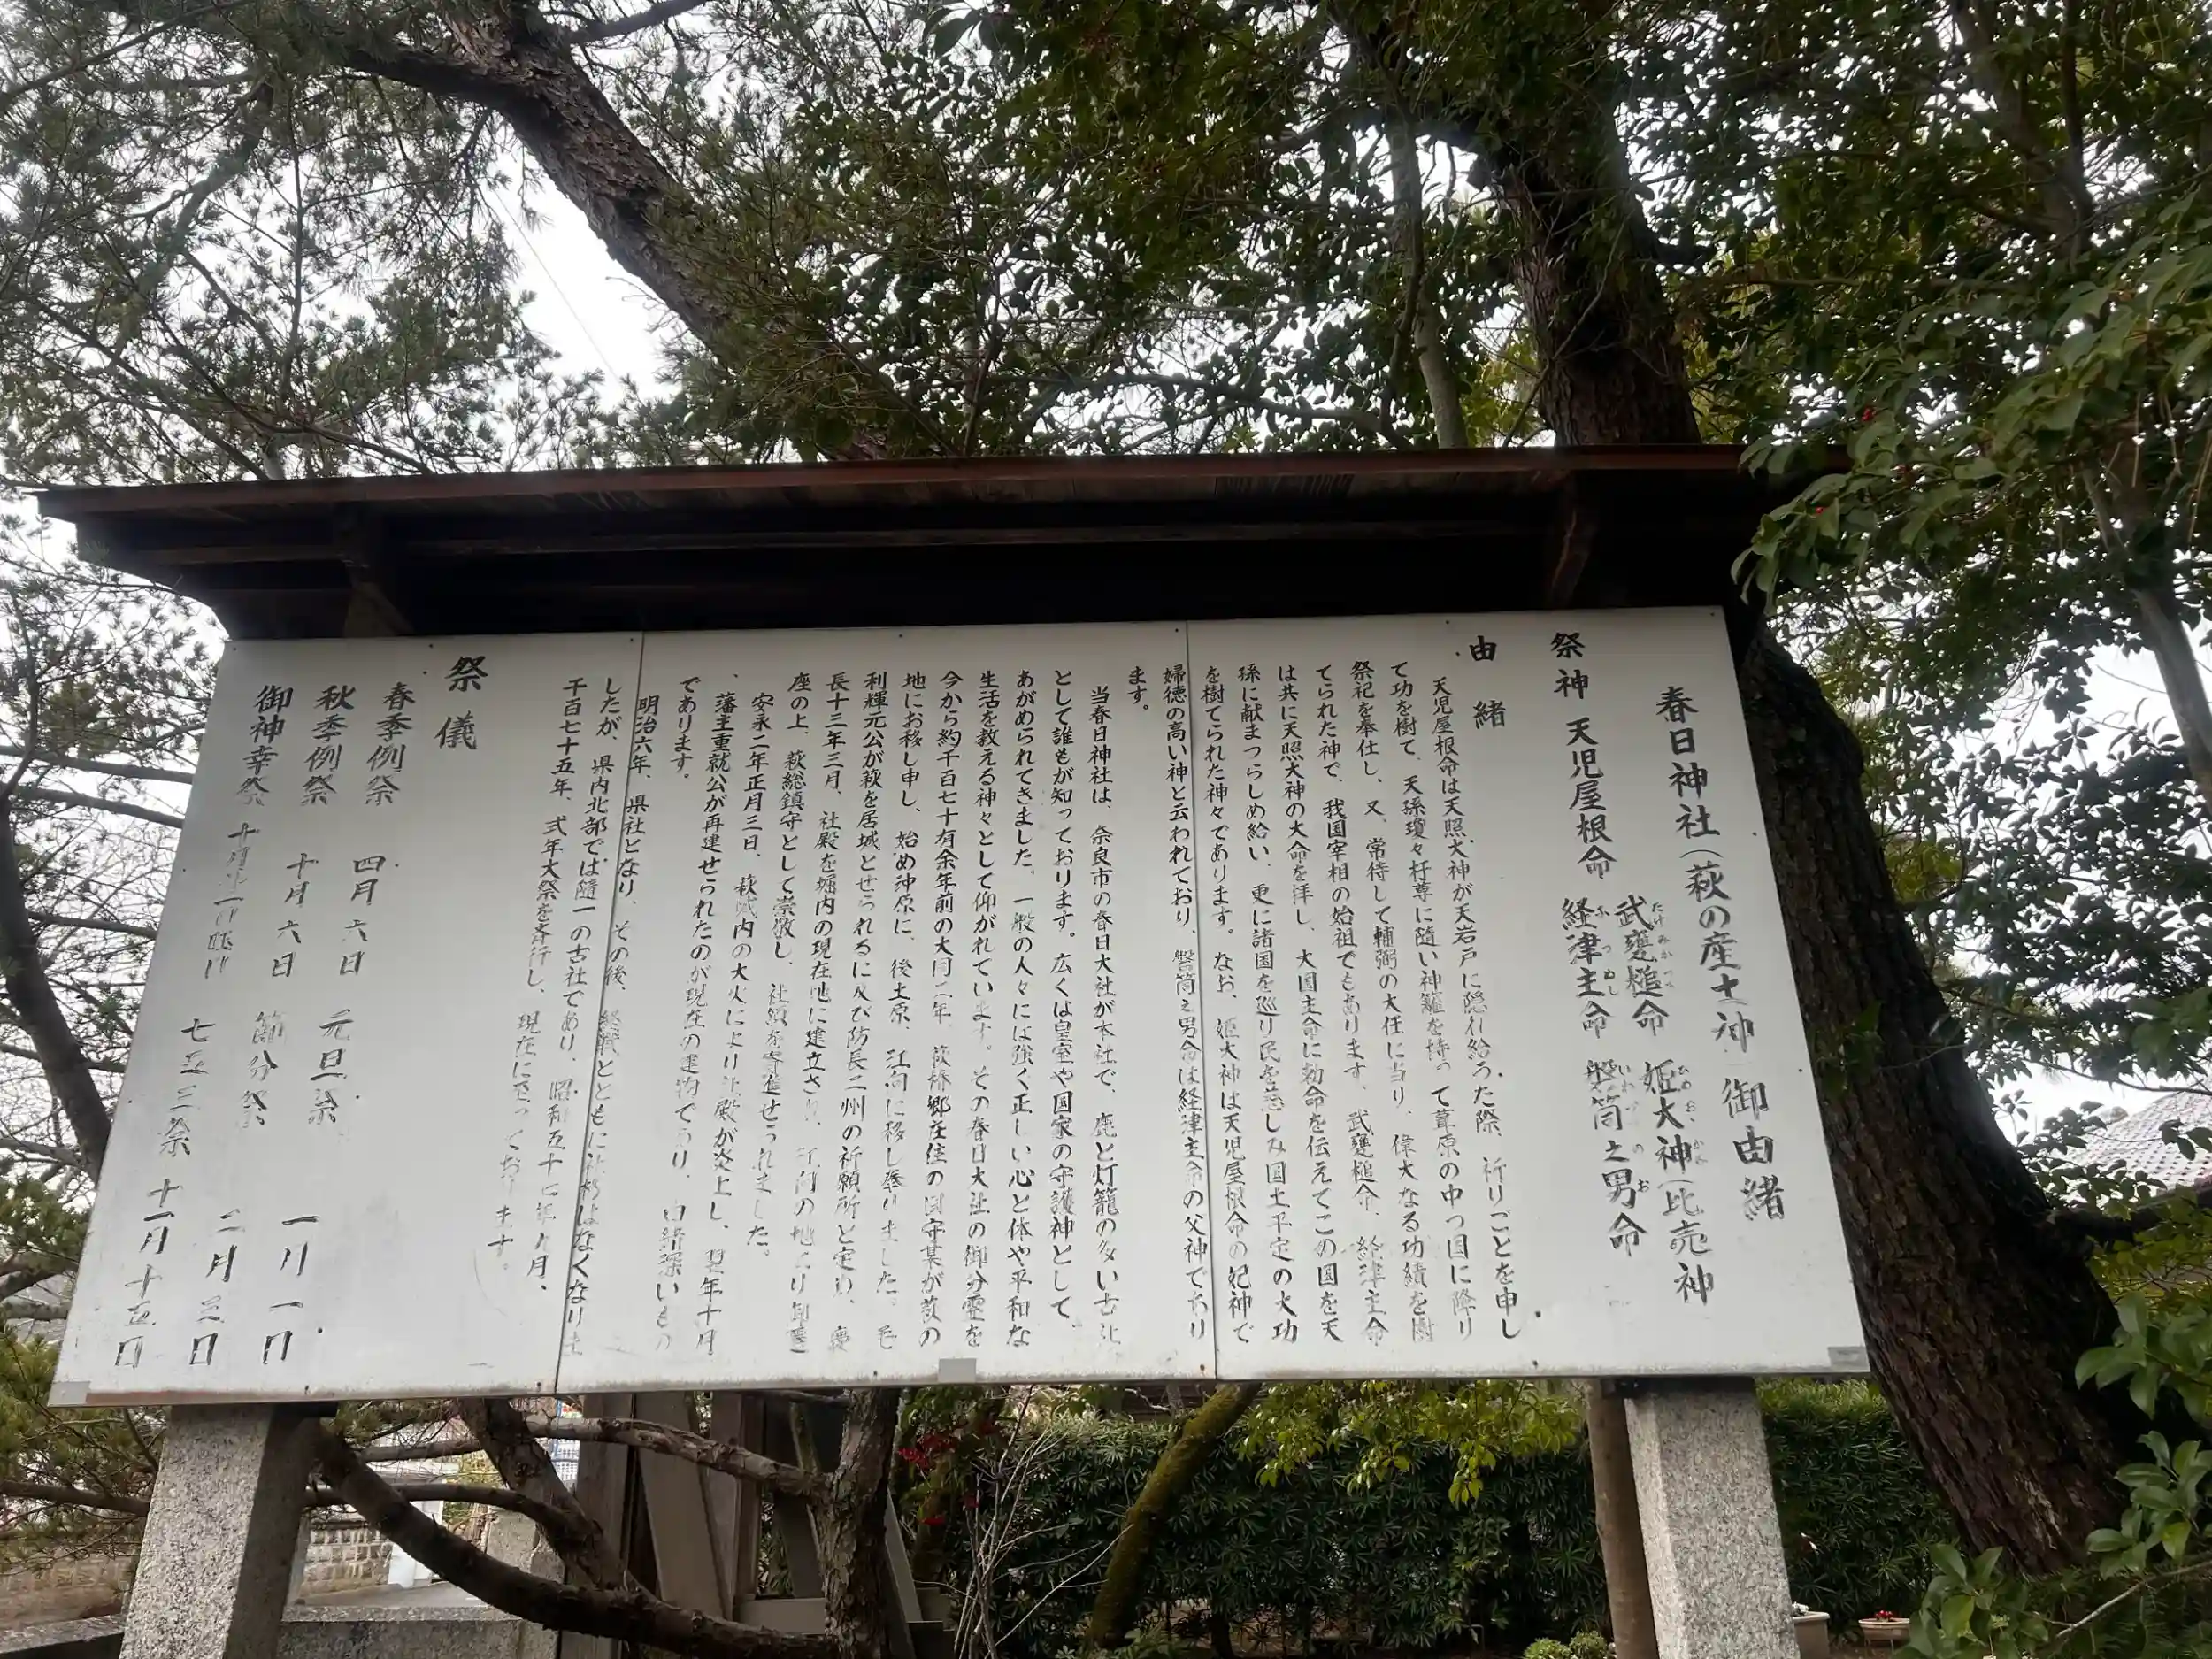 春日神社(萩の産土神)御由緒
祭神 天児屋根命 武甕槌命 姫大神(比売神
経津主命 磐筒之男命
たけみかづち
ひめおおかみ
ふつぬし
いわつつのお
由緒
天児屋根命は天照大神が天岩戸に隠れ給うた際、祈りごとを申し
て功を樹て、天孫瓊々杵尊に随い神籬を持って葦原の中つ国に降り
祭祀を奉仕し、又、常侍して輔弼の大任に当り、偉大なる功績を樹
てられた神で、我国宰相の始祖でもあります。武甕槌命、経津主命
は共に天照大神の大命を拝し、大国主命に勅命を伝えてこの国を天
孫に献まつらしめ給い、更に諸国を巡り民を慈しみ国土平定の大功
を樹てられた神々であります。なお、姫大神は天児屋根命の妃神で
婦徳の高い神と云われており、磐筒之男命は経津主命の父神であり
ます。
当春日神社は、奈良市の春日大社が本社で、鹿と灯籠の多い古社
として誰もが知っております。広くは皇室や国家の守護神として、
あがめられてきました。一般の人々には強く正しい心と体や平和な
生活を教える神々として仰がれています。その春日大社の御分霊を
今から約千百七十有余年前の大同二年、萩椿郷在住の国守某が萩の
地にお移し申し、始め沖原に、後土原、江向に移し奉りました。毛
利輝元公が萩を居城とせられるに及び防長二州の祈願所と定め、慶
長十三年三月、社殿を堀内の現在地に建立され、江向の地より御遷
座の上、萩総鎮守として崇敬し、社領を寄進せられました。
安永二年正月三日、萩城内の大火により社殿が炎上し、翌年十月
、藩主重就公が再建せられたのが現在の建物であり、由緒深いもの
であります。
明治六年、県社となり、その後、終戦とともに社格はなくなりま
したが、県内北部では随一の古社であり、昭和五十七年
月、
千百七十五年、式年大祭を斉行し、現在に至っております。
祭儀
春季例祭 四月六日 元旦祭 一月一日
秋季例祭 十月六日 節分祭 二月三日
御神幸祭
七五三祭 十一月十五日